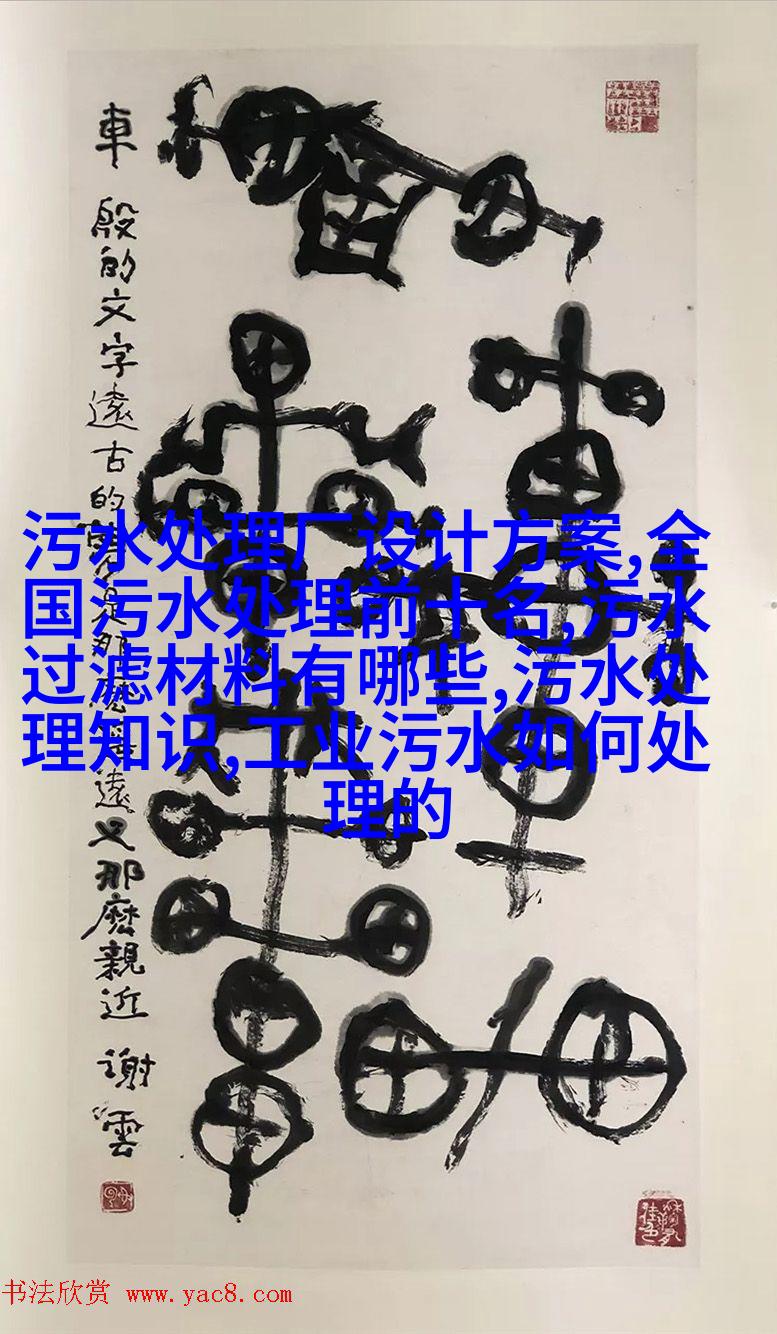 車 殷的文字遠古的是那麽遠又那麽親近 謝雲
污水处理厂设计方案,全
国污水处理前十名,污水
过滤材料有哪些,污水处
理知识,工业污水如何处
理的
书法欣赏 www.yac8.com